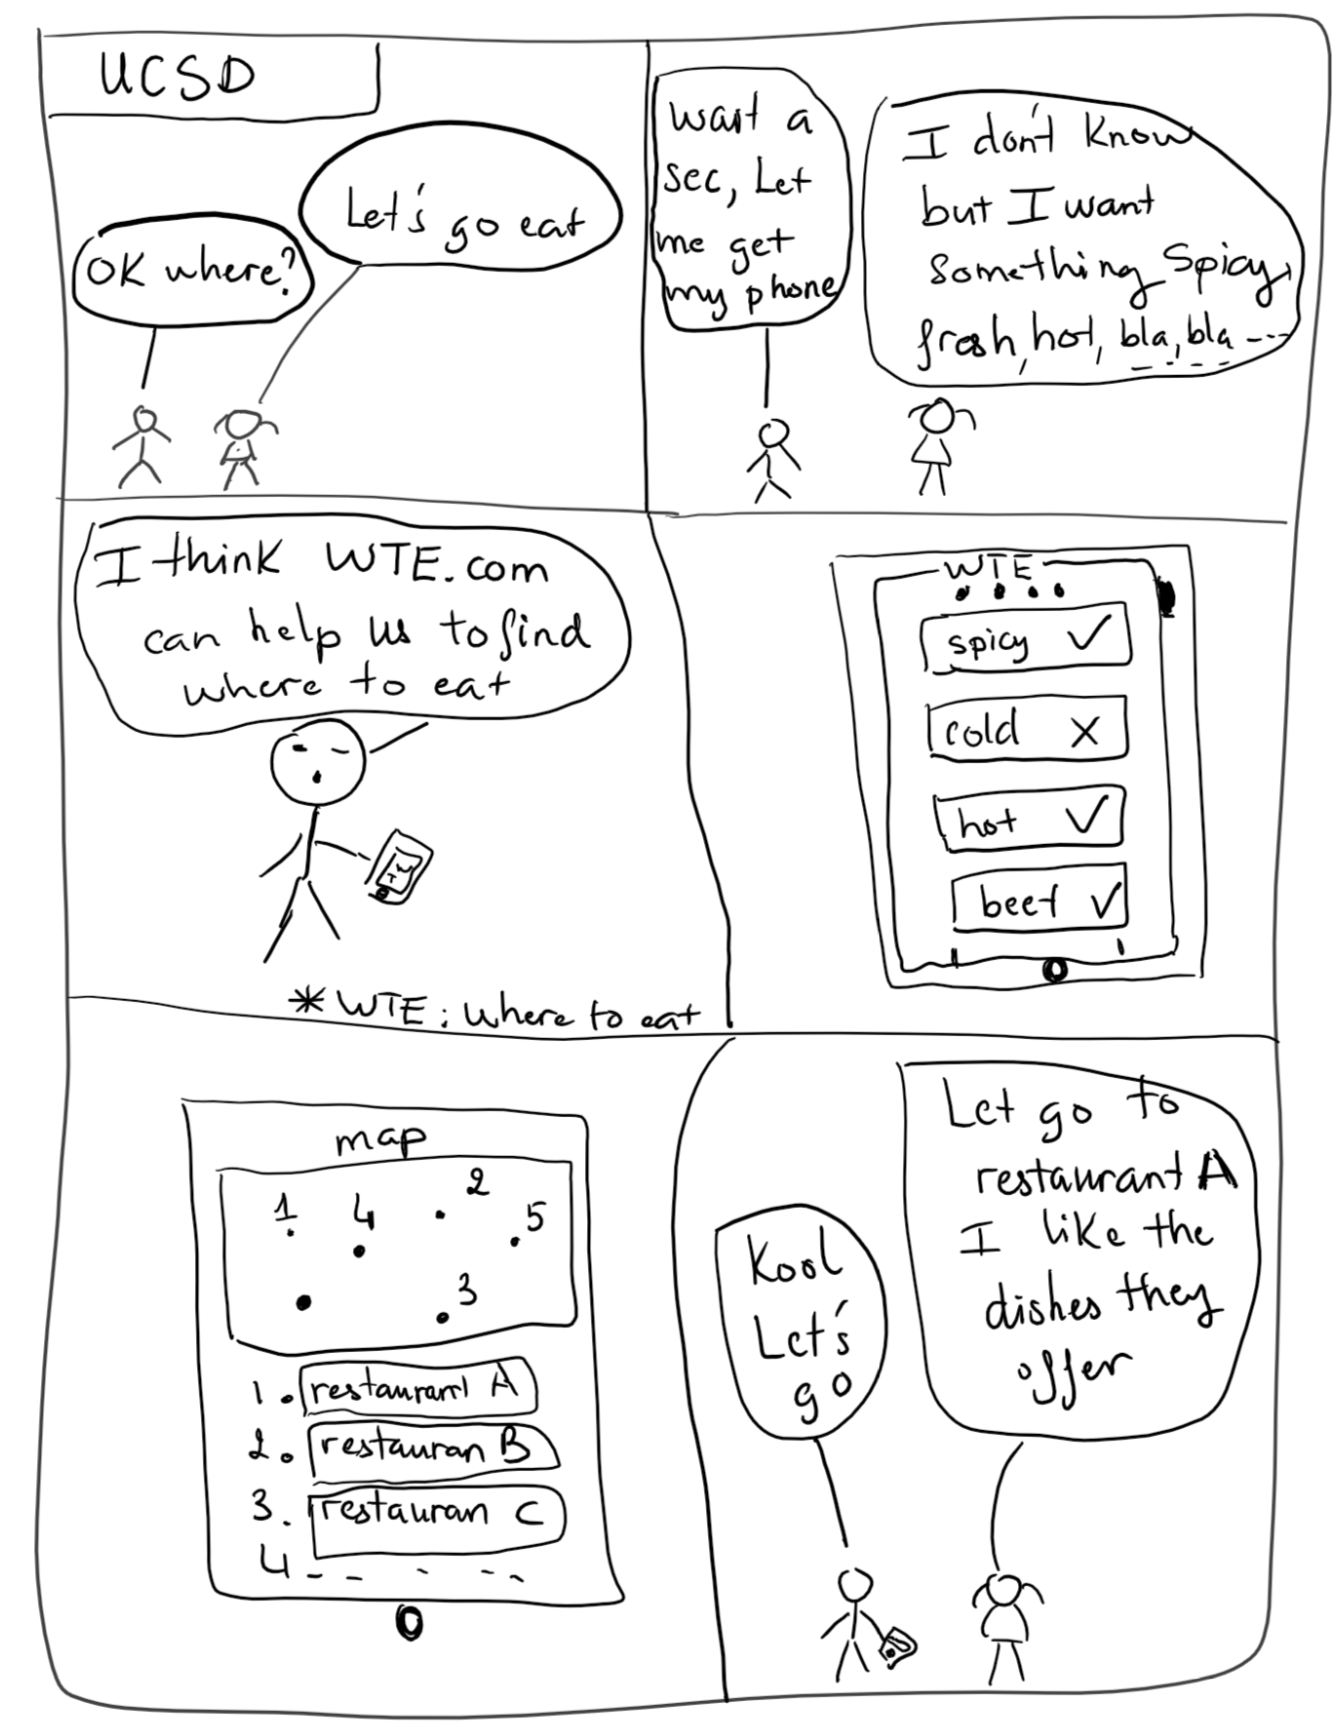 UCSD
Let's go eat
OK where?
wait a
sec, Let
me get
my phone
I don't know
but I want
something spicy,
fresh, hot, bla, bla ---
I think WTE.com
can help us to find
where to eat
* WTE: where to eat
WTE
spicy ✓
cold X
hot ✓
beef ✓
map
1 4 2 5
3
1. restaurant A
2. restauran B
3. restauran C
4 - - - - -
Let go to
restaurant A
I like the
dishes they
offer
Kool
Let's
go